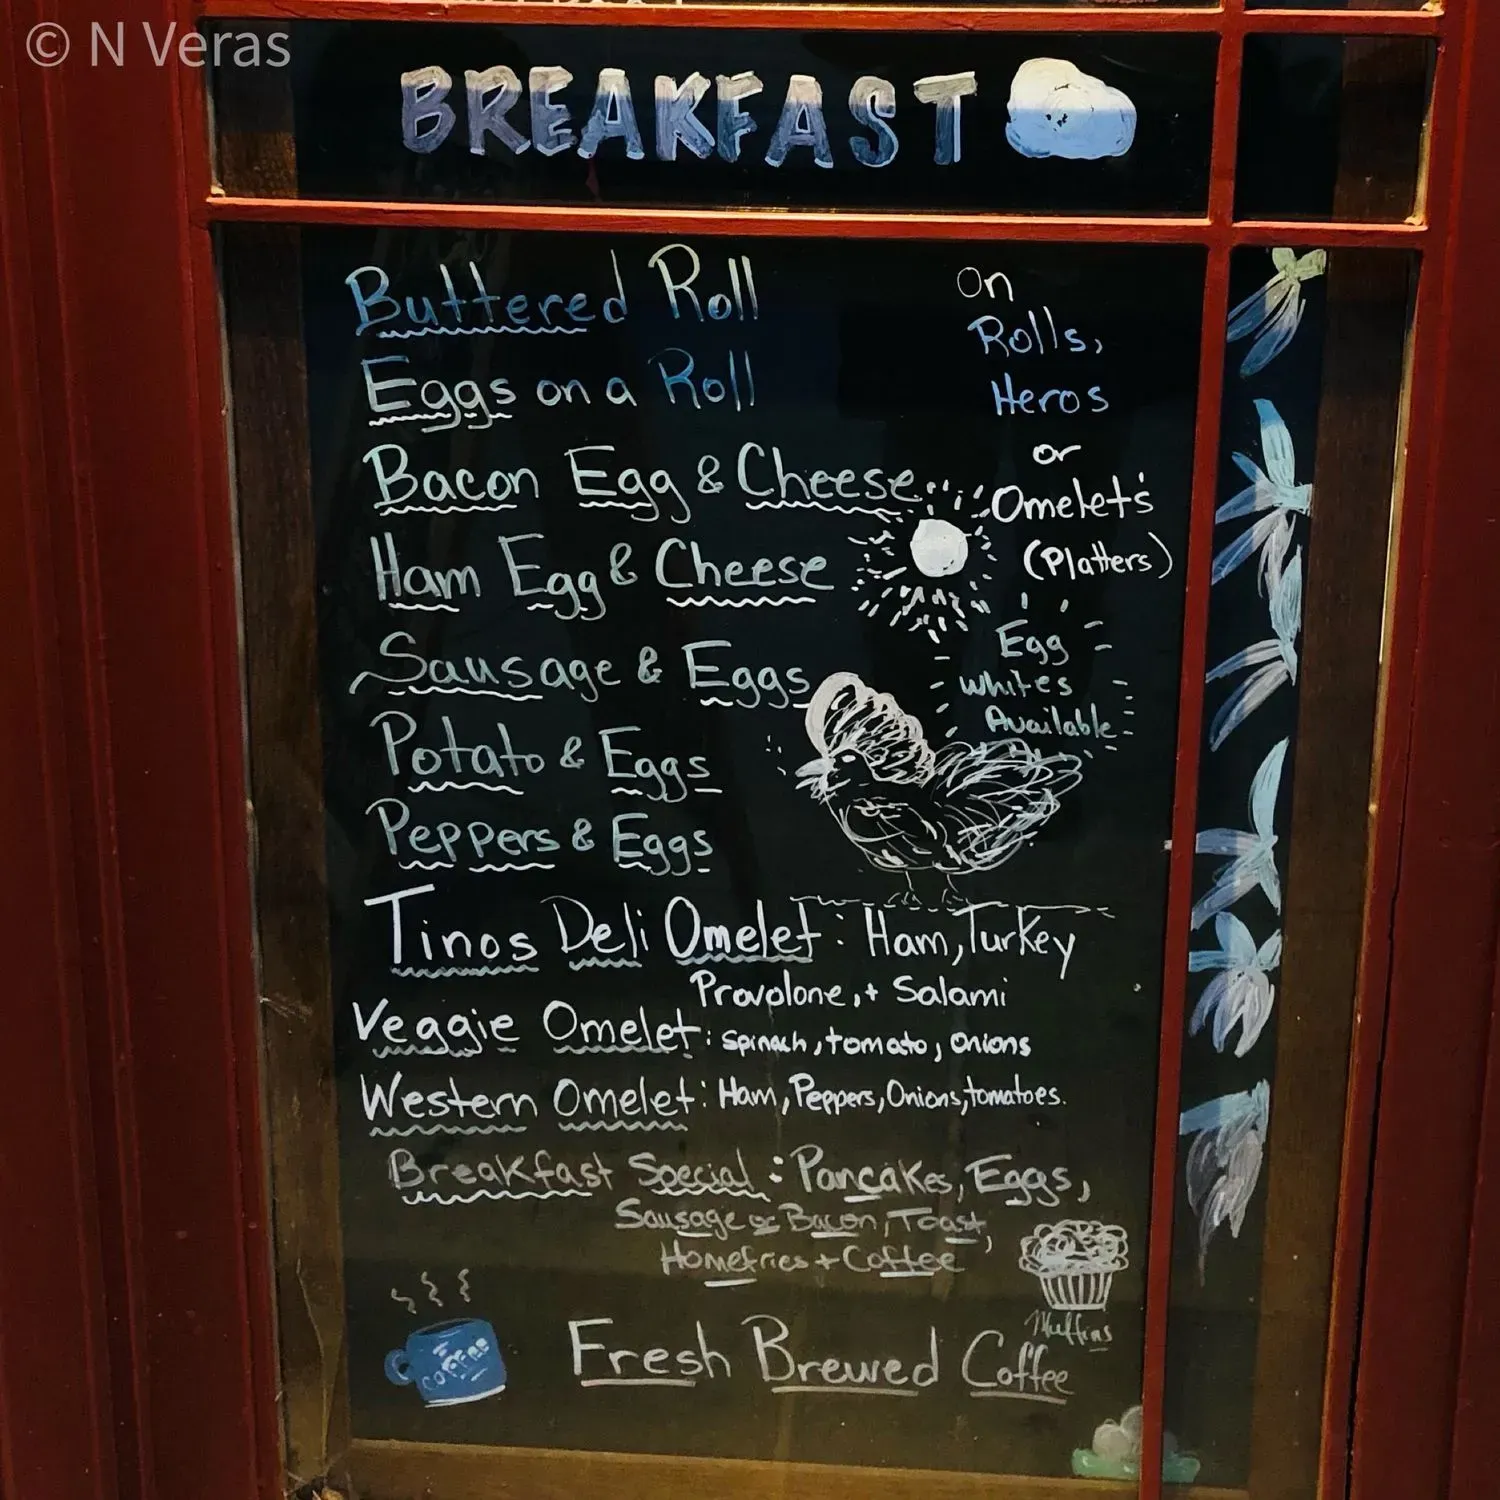 © N Veras
BREAKFAST
Buttered Roll
Eggs on a Roll
Bacon Egg & Cheese
Ham Egg & Cheese
Sausage & Eggs
Potato & Eggs
Peppers & Eggs
On
Rolls,
Heros
or
Omelet's
(Platters)
Egg
Whites
Available
Tinos Deli Omelet: Ham, Turkey
Provolone, + Salami
Veggie Omelet: spinach, tomato, onions
Western Omelet: Ham, Peppers, Onions, tomatoes.
Breakfast Special: Pancakes, Eggs,
Sausage or Bacon, Toast,
Homefries + Coffee
Muffins
coffee
Fresh Brewed Coffee